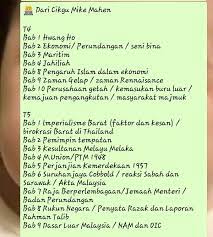 Dari Cikgu Mike Mahen
T4
Bab 1 Hwang Ho
Bab 2 Ekonomi / Perundangan / seni bina
Bab 3 Maritim
Bab 4 Jahiliah
Bab 8 Pengaruh Islam dalam ekonomi
Bab 9 Zaman Gelap / zaman Rennaisance
Bab 10 Perusahaan getah / kemasukan buru luar /
kemajuan pengangkutan / masyarakat majmuk
T5
Bab 1 Imperialisme Barat (faktor dan kesan) /
birokrasi Barat di Thailand
Bab 2 Pemimpin tempatan
Bab 3 Kesultanan Melayu Melaka
Bab 4 M.Union/PTM 1948
Bab 5 Perjanjian Kemerdekaan 1957
Bab 6 Suruhanjaya Cobbold / reaksi Sabah dan
Sarawak / Akta Malaysia
Bab 7 Raja Berperlembagaan/Jemaah Menteri /
Badan Perundangan
Bab 8 Rukun Negara / Penyata Razak dan Laporan
Rahman Talib
Bab 9 Dasar Luar Malaysia / NAM dan OIC